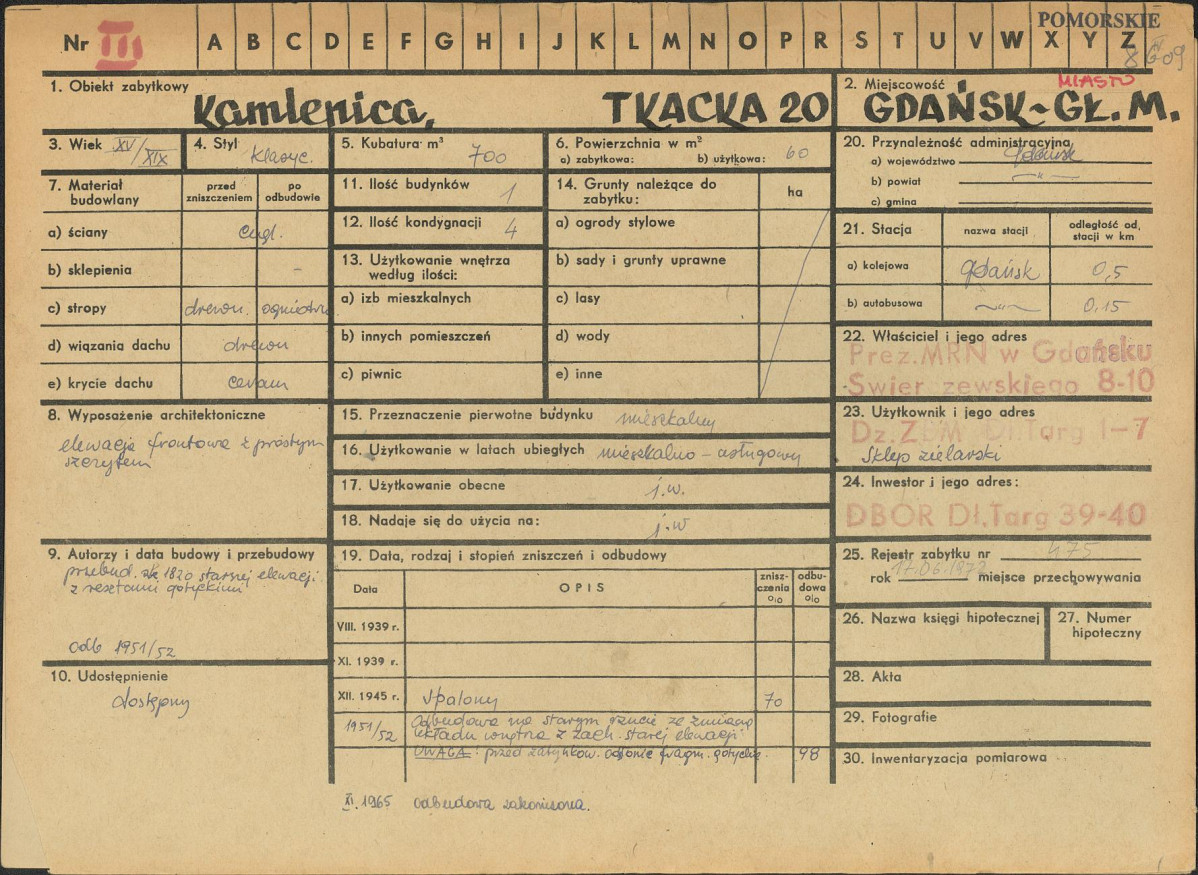 POMORSKIE
Nr III A B C D E F G H I J K L M N O P R S T U V W X Y Z
1. Obiekt zabytkowy
Kamienica, TKACKA 20
2. Miejscowość MIASTO
GDAŃSK-GŁ.M.
3. Wiek XV/XIX
4. Styl klasyc.
5. Kubatura m³ 700
6. Powierzchnia w m²
a) zabytkowa: b) użytkowa: 60
7. Materiał budowlany
przed zniszczeniem
po odbudowie
a) ściany cegl.
b) sklepienia -
c) stropy drewn. ogniotrw
d) wiązania dachu drewn
e) krycie dachu ceram
8. Wyposażenie architektoniczne
elewacja frontowa z prostym
szczytem
9. Autorzy i data budowy i przebudowy
przebud. ok 1820 starszej elewacji
z resztami gotyckimi
odb 1951/52
10. Udostępnienie
dostępny
11. Ilość budynków 1
12. Ilość kondygnacji 4
13. Użytkowanie wnętrza
według ilości:
a) izb mieszkalnych
b) innych pomieszczeń
c) piwnic
14. Grunty należące do
zabytku:
ha
a) ogrody stylowe
b) sady i grunty uprawne
c) lasy
d) wody
e) inne
15. Przeznaczenie pierwotne budynku mieszkalny
16. Użytkowanie w latach ubiegłych mieszkalno - usługowy
17. Użytkowanie obecne j.w.
18. Nadaje się do użycia na: j.w
19. Data, rodzaj i stopień zniszczeń i odbudowy
Data
OPIS
znisz-
czenia
o/o
odbu-
dowa
o/o
VIII. 1939 r.
XI. 1939 r.
XII. 1945 r. spalony 70
1951/52 Odbudowa na starym rzucie ze zmianą
układu wnętrza z zach. starej elewacji
UWAGA: przed zatynkow. odsłonię. fragm. gotyckie. 98
XI.1965 odbudowa zakończona.
20. Przynależność administracyjna
a) województwo Gdańsk
b) powiat -"-
c) gmina
21. Stacja
nazwa stacji
odległość od
stacji w km
a) kolejowa Gdańsk 0,5
b) autobusowa -"- 0,15
22. Właściciel i jego adres
Prez.MRN w Gdańsku
Świerczewskiego 8-10
23. Użytkownik i jego adres
Dz.ZBM Dł.Targ 1-7
Sklep zielarski
24. Inwestor i jego adres:
DBOR Dł.Targ 39-40
25. Rejestr zabytku nr 475
rok 17.06.1972 miejsce przechowywania
26. Nazwa księgi hipotecznej
27. Numer
hipoteczny
28. Akta
29. Fotografie
30. Inwentaryzacja pomiarowa